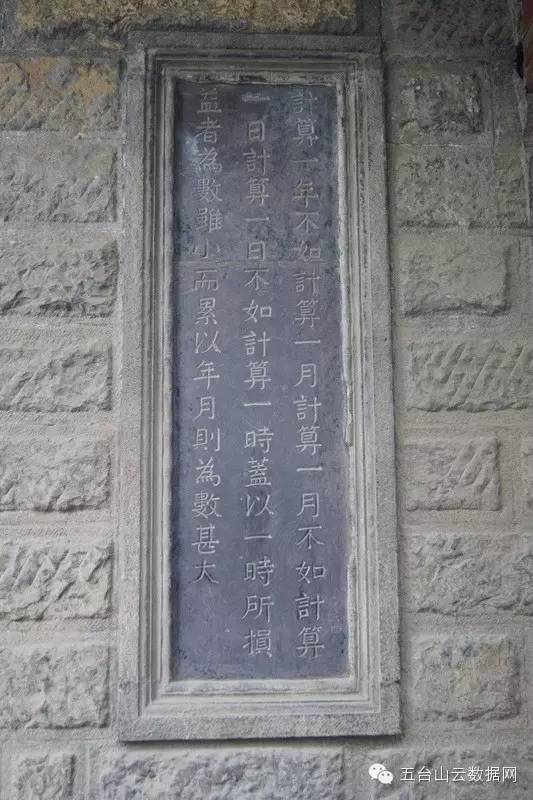 計算一年不如計算一月計算一月不如計算
一日計算一日不如計算一時蓋以一時所損
益者為數雖小而累以年月則為數甚大
五台山云数据网